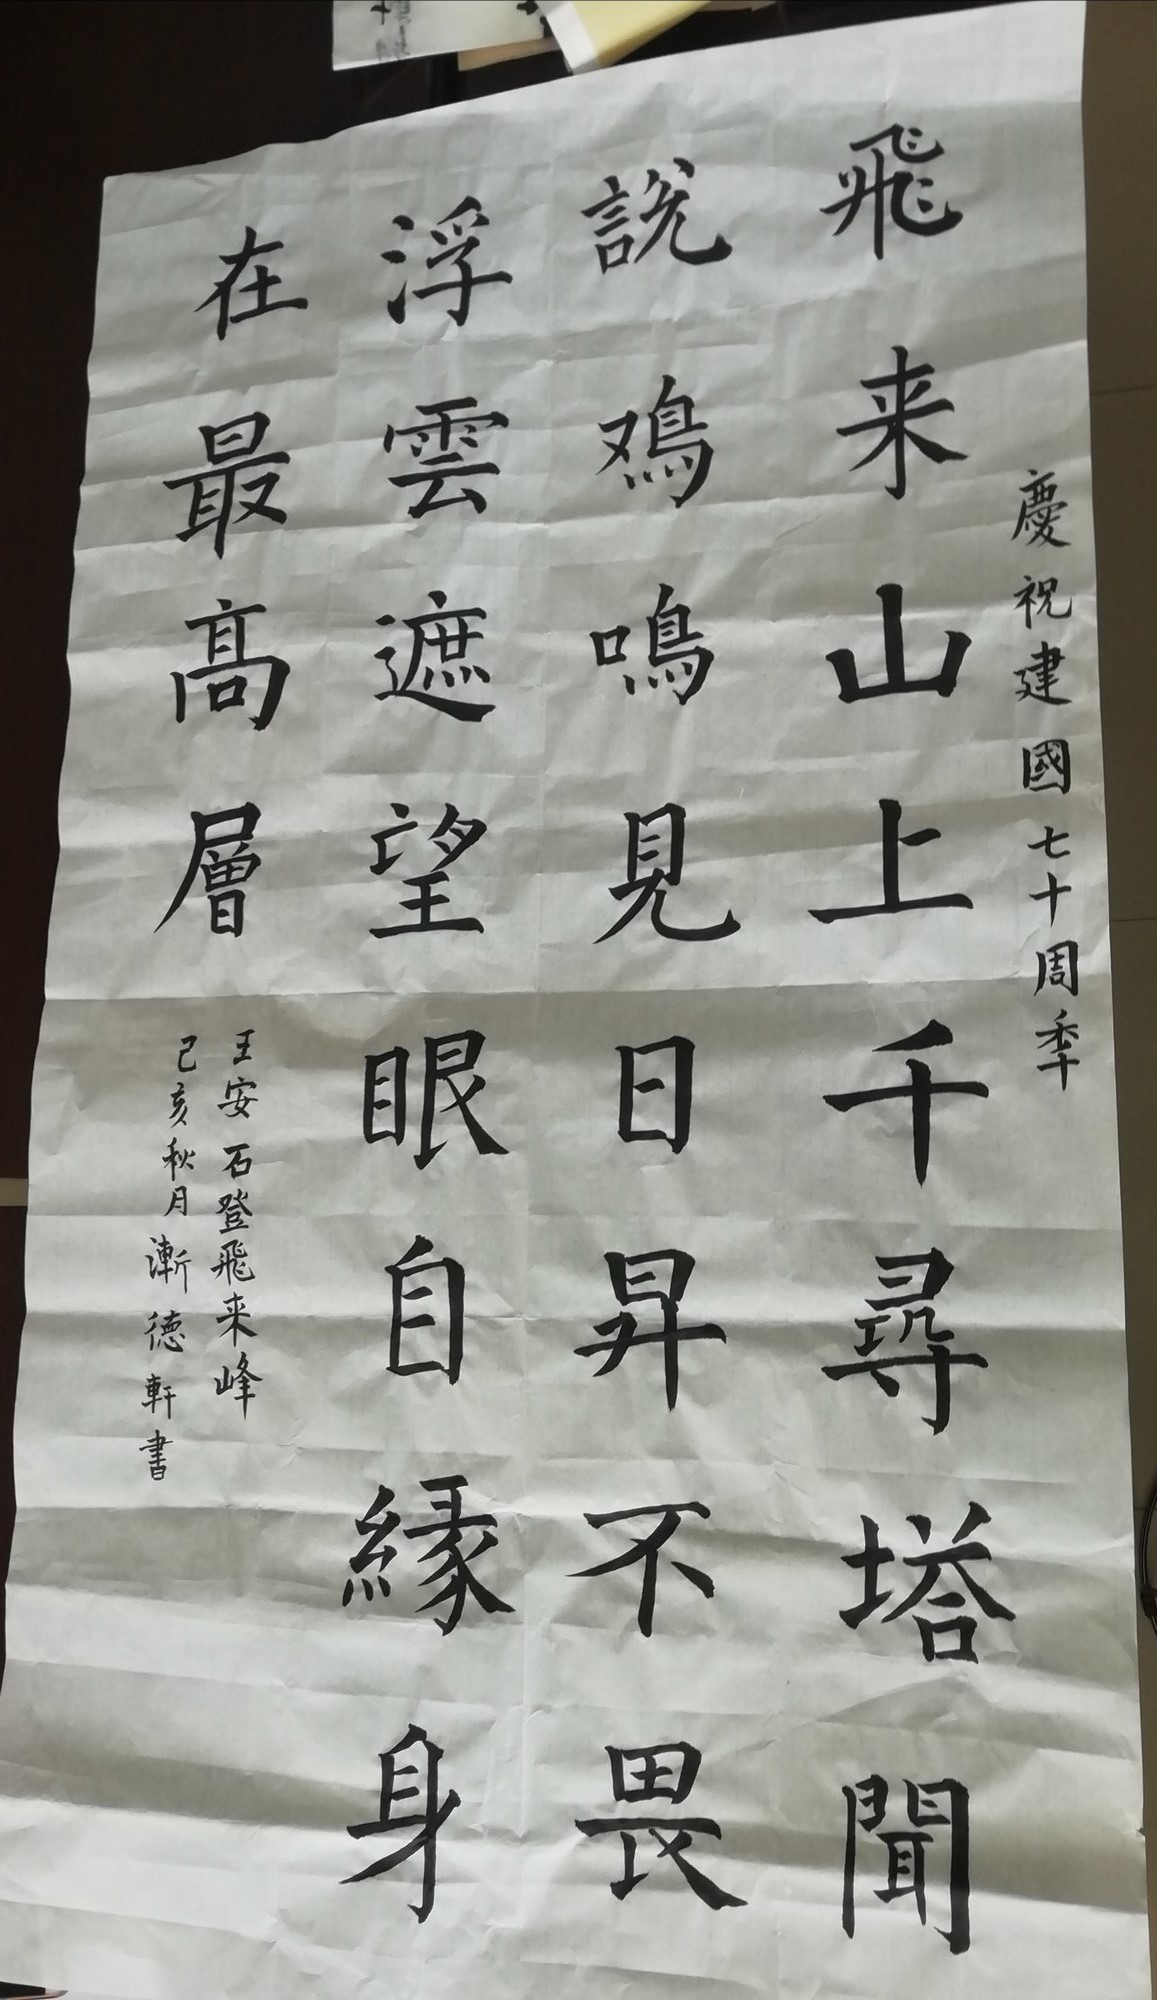 慶祝建國七十周年
飛来山上千尋塔聞
說鳮鳴見日昇不畏
浮雲遮望眼自緣身
在最高層
王安石登飛来峰
己亥秋月漸德軒書